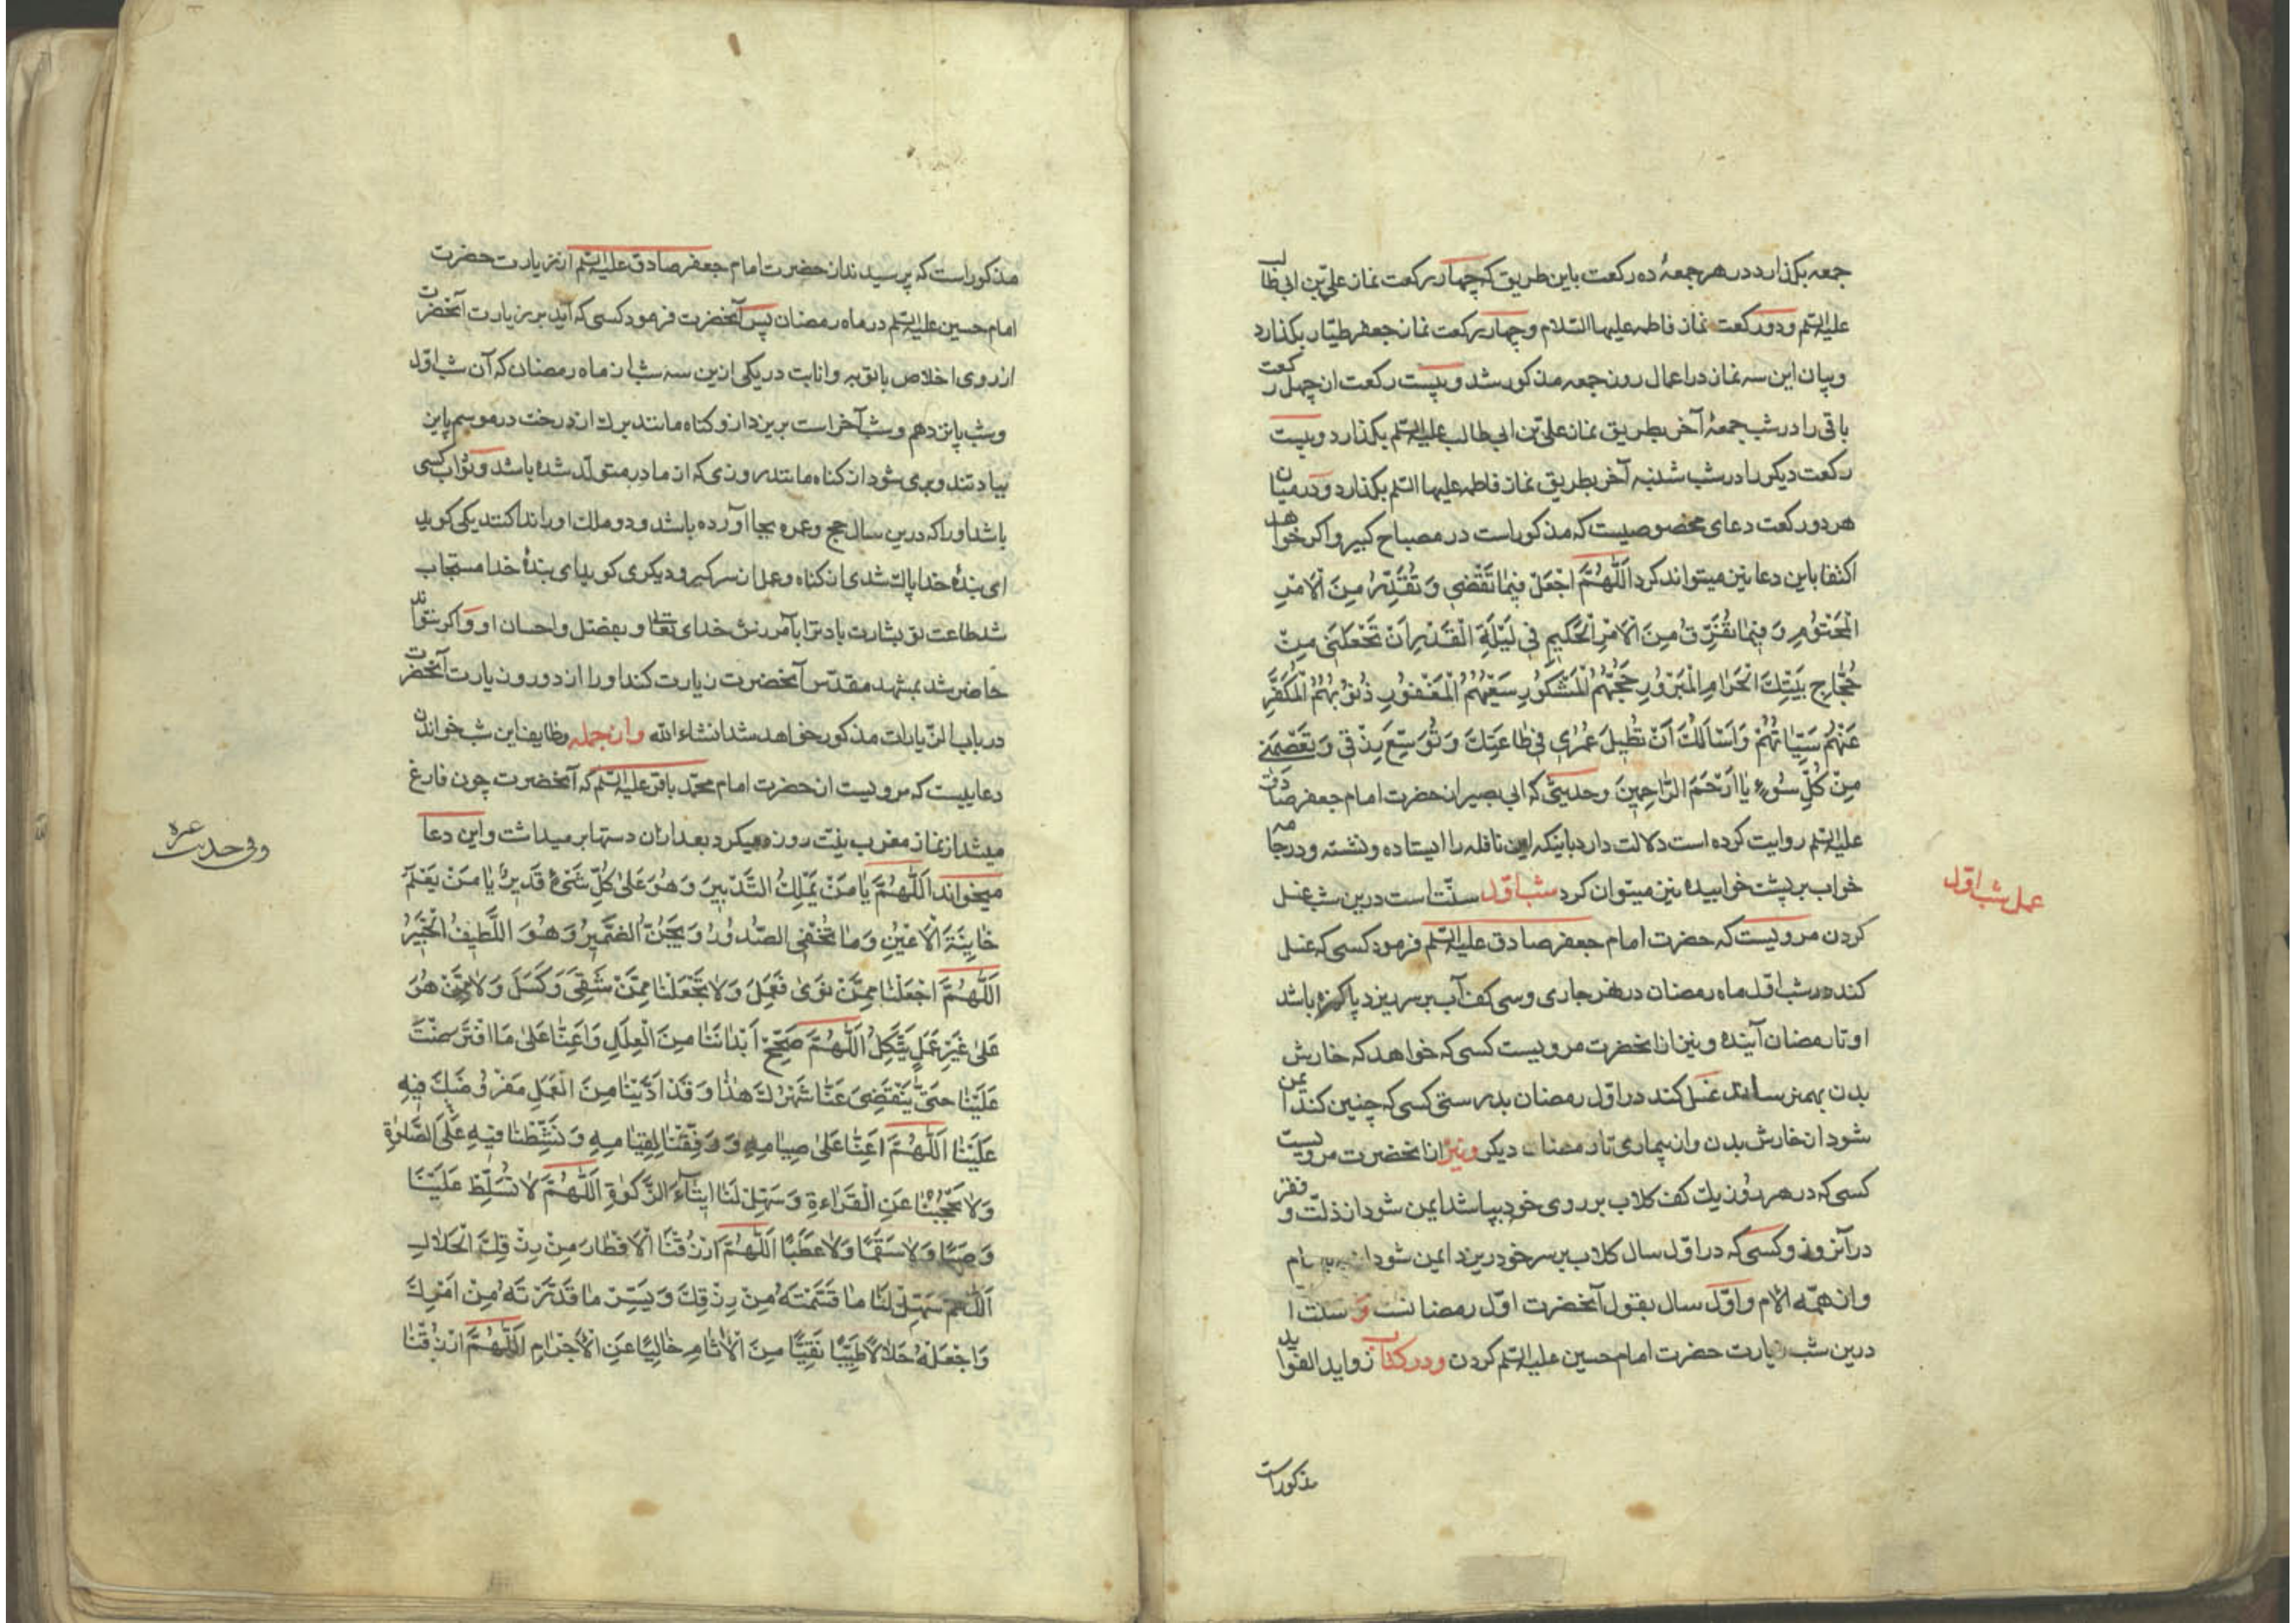 جمعه بکذارد در هر جمعهٔ ده رکعت باین طریق که چهار رکعت نماز علیّ بن ابی طالب
علیه السلم و دو رکعت نماز فاطمه علیها السّلام و چهار رکعت نماز جعفر طیّار بکذارد
و بیان این سه نماز در اعمال روز جمعه مذکور شد و بیست رکعت از چهل رکعت
باقی را در شب جمعهٔ آخر بطریق نماز علیّ بن ابی طالب علیه السلم بکذارد و بیست
رکعت دیکر را در شب شنبه آخر بطریق نماز فاطمه علیها السلم بکذارد و در میان
هر دو رکعت دعای مخصوصیست که مذکور است در مصباح کبیر و اکر خواهد
اکتفا باین دعا نیز میتواند کرد اَللّٰهُمَّ اجْعَلْ فِیمٰا تَقْضِی وَ تُقَدِّرُ مِنَ الْاَمْرِ
الْمَحْتُومِ وَ فِیمٰا تَفْرُقُ مِنَ الْاَمْرِ الْحَکِیمِ فِی لَیْلَةِ الْقَدْرِ اَنْ تَجْعَلَنِی مِنْ
حُجّٰاجِ بَیْتِكَ الْحَرٰامِ الْمَبْرُورِ حَجُّهُمُ الْمَشْکُورِ سَعْیُهُمُ الْمَغْفُورِ ذُنُوبُهُمُ الْمُکَفَّرِ
عَنْهُمْ سَیِّاٰتُهُمْ وَ اَسْاَلُكَ اَنْ تُطِیلَ عُمْرِی فِی طٰاعَتِكَ وَ تُوَسِّعَ رِزْقِی وَ تَعْصِمَنِی
مِنْ کُلِّ سُوءٍ یٰا اَرْحَمَ الرّٰاحِمِینَ و حدیثی که ابی بصیر از حضرت امام جعفر صادق
علیه السلم روایت کرده است دلالت دارد باینکه این نافله را ایستاده و نشسته و در جامه
خواب بر پشت خوابیده نیز میتوان کرد شب اوّل سنّت است درین شب غسل
عمل شب اوّل
کردن مرویست که حضرت امام جعفر صادق علیه السلم فرمود کسی که غسل
کند در شب اوّل ماه رمضان در نهر جاری و سی کف آب بر سر ریزد پاکیزه باشد
او تا رمضان آینده و نیز از انحضرت مرویست کسی که خواهد که خارش
بدن بهم نرساند غسل کند در اوّل رمضان بدرستی کسی که چنین کند ایمن
شود از خارش بدن و از بیماری تا رمضان دیکر و نیز از انحضرت مرویست
کسی که در هر روز یك کف کلاب بر روی خود بپاشد ایمن شود از ذلّت و فقر
در آنروز و کسی که در اوّل سال کلاب بر سر خود ریزد ایمن شود از
و از همّه الام و اوّل سال بقول آنحضرت اوّل رمضانست و سنت
درین شب زیارت حضرت امام حسین علیه السلم کردن و در کتاب زواید الفواید
مذکور است
مذکور است که پرسیدند از حضرت امام جعفر صادق علیه السلم از زیارت حضرت
امام حسین علیه السلم در ماه رمضان پس آنحضرت فرمود کسی که آید بر زیارت آنحضرت
از روی اخلاص با توبه و انابت در یکی ازین سه شب از ماه رمضان که آن شب اوّل
و شب پانزدهم و شب آخر است بریزد ازو کناه مانند برك از درخت در موسم پاین
بیادتند و بری شود از کناه مانند روزی که از مادر متولّد شده باشد و ثواب کسی
باشد او را که درین سال حج و عمره بجا آورده باشد و دو ملك او را ندا کنند یکی کوید
ای بندهٔ خدا پاك شدی از کناه و عمل از سر کیر و دیکری کوید ای بندهٔ خدا مستجاب
شد طاعت تو بشارت باد ترا بآمرزش خدای تعالی و بفضل و احسان او و اکر نتواند
حاضر شد بمشهد مقدّس آنحضرت زیارت کند او را از دور و زیارت آنحضرت
در باب الزّیارات مذکور خواهد شد انشاء الله و از جمله وظایف این شب خواندن
دعاییست که مرویست از حضرت امام محمّد باقر علیه السلم که آنحضرت چون فارغ
میشد از نماز مغرب نیّت روزه میکرد بعد ازان دستها بر میداشت و این دعا
میخواند اَللّٰهُمَّ یٰا مَنْ یَمْلِكُ التَّدْبِیرَ وَ هُوَ عَلیٰ کُلِّ شَیْءٍ قَدِیرٌ یٰا مَنْ یَعْلَمُ
خٰائِنَةَ الْاَعْیُنِ وَ مٰا تُخْفِی الصُّدُورُ وَ یُجِنُّ الضَّمِیرُ وَ هُوَ اللَّطِیفُ الْخَبِیرُ
اَللّٰهُمَّ اجْعَلْنٰا مِمَّنْ نَویٰ فَعَمِلَ وَ لٰا تَجْعَلْنٰا مِمَّنْ شَقِیَ وَ کَسَلَ وَ لٰا مِمَّنْ هُوَ
عَلیٰ غَیْرِ عَمَلٍ یَتَّکِلُ اَللّٰهُمَّ صَحِّحْ اَبْدٰانَنٰا مِنَ الْعِلَلِ وَ اَعِنّٰا عَلیٰ مَا افْتَرَضْتَ
عَلَیْنٰا حَتّیٰ یَنْقَضِیَ عَنّٰا شَهْرُكَ هٰذٰا وَ قَدْ اَدَّیْنٰا مِنَ الْعَمَلِ مَفْرُوضَكَ فِیهِ
عَلَیْنٰا اَللّٰهُمَّ اَعِنّٰا عَلیٰ صِیٰامِهِ وَ وَفِّقْنٰا لِقِیٰامِهِ وَ نَشِّطْنٰا فِیهِ عَلَی الصَّلٰوةِ
وَ لٰا تَحْجُبْنٰا عَنِ الْقَرٰاءةِ وَ سَهِّلْ لَنٰا اِیتٰآءَ الزَّکٰوةِ اَللّٰهُمَّ لٰا تُسَلِّطْ عَلَیْنٰا
وَصَبًا وَ لٰا سَقَمًا وَ لٰا عَطَبًا اَللّٰهُمَّ ارْزُقْنَا الْاِفْطٰارَ مِنْ رِزْقِكَ الْحَلٰالِ
اَللّٰهُمَّ سَهِّلْ لَنٰا مٰا قَسَّمْتَهُ مِنْ رِزْقِكَ وَ یَسِّرْ مٰا قَدَّرْتَهُ مِنْ اَمْرِكَ
وَ اجْعَلْهُ حَلٰالًا طَیِّبًا نَقِیًّا مِنَ الْاٰثٰامِ خٰالِیًا عَنِ الْاَجْرٰامِ اَللّٰهُمَّ ارْزُقْنٰا